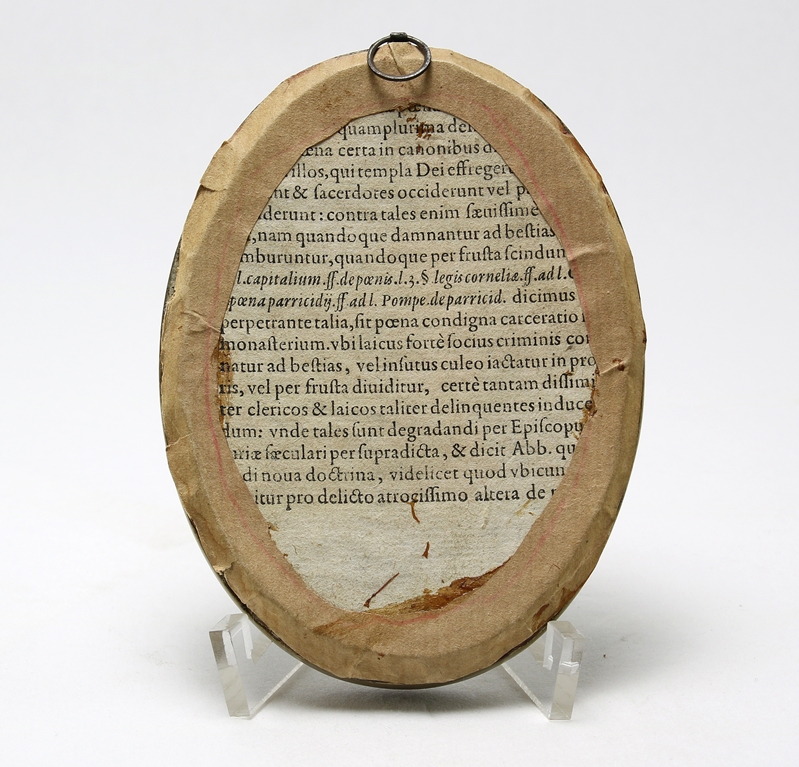 quamplurima de
certa in canonibus
illos, qui templa Dei effreger
nt & ſacerdotes occiderunt vel p
derunt : contra tales enim ſæuiſſime
,nam quandoque damnantur ad beſtias
mburuntur, quandoque per fruſta ſcindun
l. capitalium. ff. de pœnis. l. 3. § legis corneliæ. ff. ad l. C
pœna parricidij. ff. ad l. Pompe. de parricid. dicimus
perpetrante talia, ſit pœna condigna carceratio
monaſterium. vbi laicus fortè ſocius criminis con
natur ad beſtias, vel inſutus culeo iactatur in pro
ris, vel per fruſta diuiditur, certè tantam diſſimi
ter clericos & laicos taliter delinquentes induce
dum: vnde tales ſunt degradandi per Epiſcopu
riæ ſæculari per ſupradicta, & dicit Abb. qu
di noua doctrina, videlicet quod vbicun
itur pro delicto atrociſſimo altera de